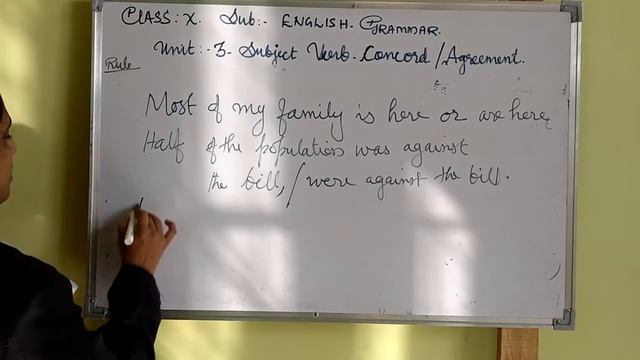 CLASS: X. Sub:- ENGLISH. Grammar.
Unit:- 3- Subject Verb- Concord/Agreement.
Rule
Most of my family is here or are here.
Half of the population was against
the bill,/were against the bill.